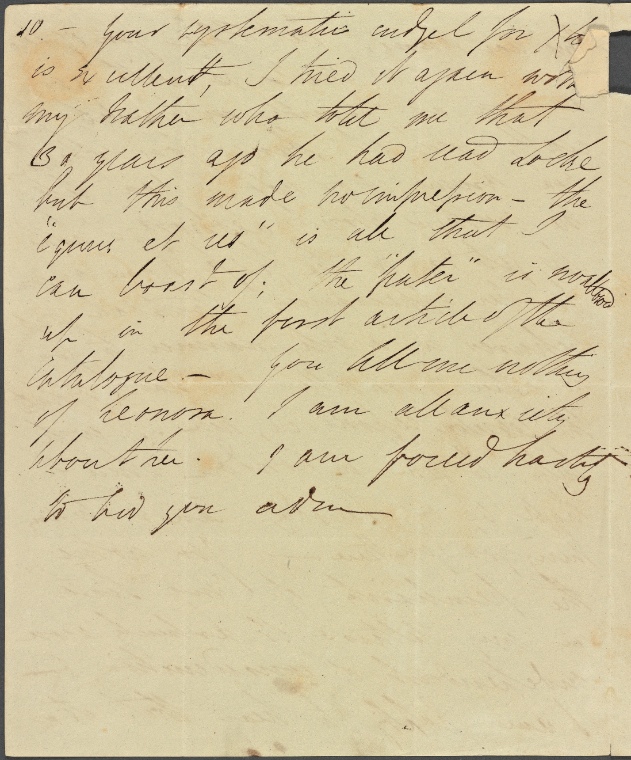 10 - Your systematic cudgel for Xty
is excellent, I tried it again with
my Father who told me that
30 years ago he had read Locke
but this made no impression - the
"equus et res" is all that I
can boast of; the "pater" is
up in the first article of the
Catalogue. - You tell me nothing
of Leonora. I am all anxiety
about her. I am forced hastily
to bid you adieu